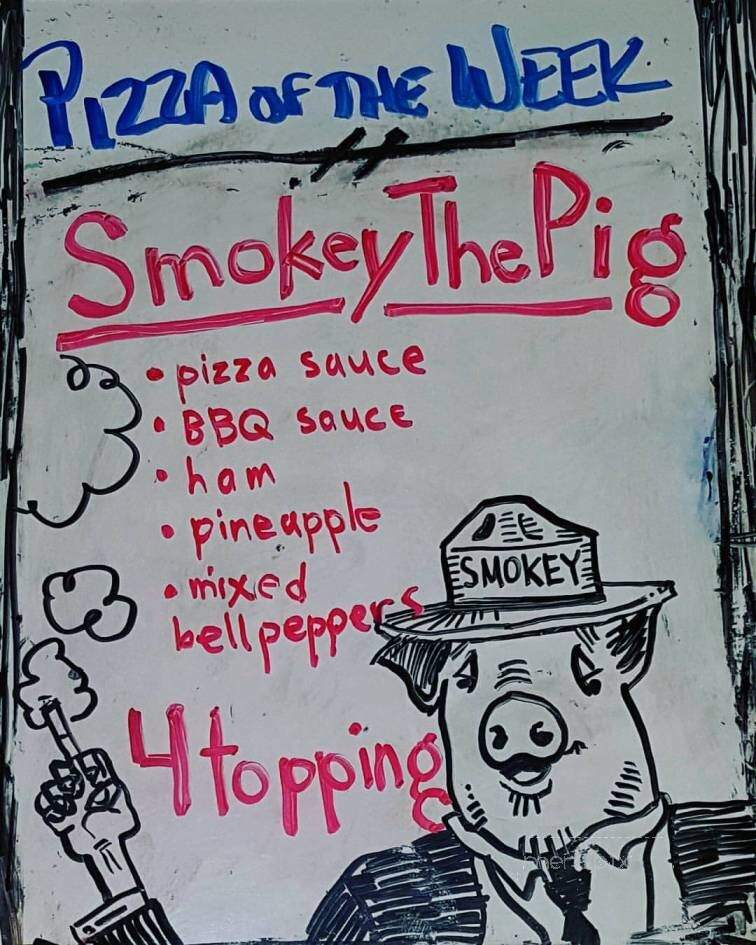 PIZZA OF THE WEEK
Smokey The Pig
• pizza sauce
• BBQ sauce
• ham
• pineapple
• mixed
bell peppers
SMOKEY
4 topping